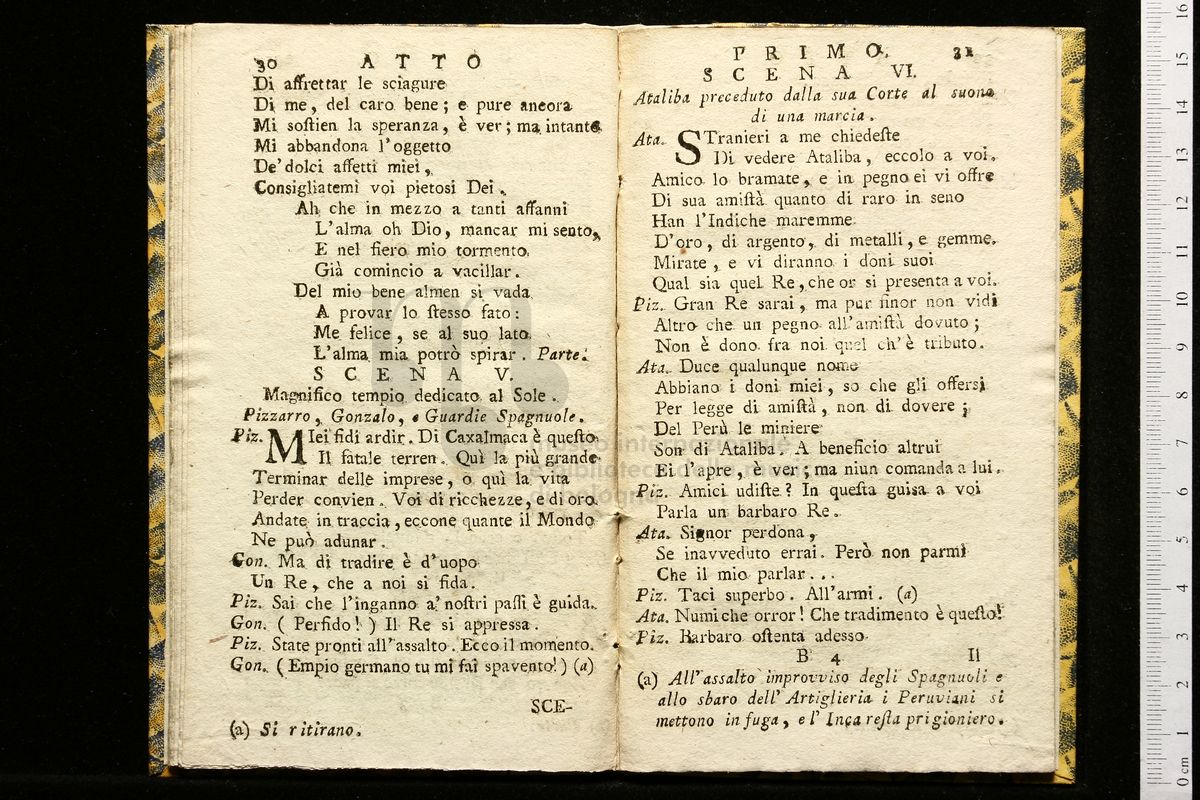 30 ATTO
Di affrettar le sciagure
Di me, del caro bene; e pure ancora
Mi soſtien la speranza, è ver; ma intanto
Mi abbandona l'oggetto
De' dolci affetti miei,
Consigliatemi voi pietosi Dei.
Ah che in mezzo a tanti affanni
L'alma oh Dio, mancar mi sento,
E nel fiero mio tormento
Già comincio a vacillar.
Del mio bene almen si vada
A provar lo ſtesso fato:
Me felice, se al suo lato
L'alma mia potrò spirar. Parte.
SCENA V.
Magnifico tempio dedicato al Sole.
Pizzarro, Gonzalo, e Guardie Spagnuole.
Piz. MIei fidi ardir. Di Caxalmaca è queſto
Il fatale terren. Quì la più grande
Terminar delle imprese, o quì la vita
Perder convien. Voi di ricchezze, e di oro
Andate in traccia, eccone quante il Mondo
Ne può adunar.
Con. Ma di tradire è d'uopo
Un Re, che a noi si fida.
Piz. Sai che l'inganno a' noſtri paſſi è guida.
Gon. (Perfido!) Il Re si appressa.
Piz. State pronti all'assalto. Ecco il momento.
Gon. (Empio germano tu mi fai spavento!) (a)
SCE-
(a) Si ritirano.
PRIMO. 31
SCENA VI.
Ataliba preceduto dalla sua Corte al suono
di una marcia.
Ata. STranieri a me chiedeſte
Di vedere Ataliba, eccolo a voi.
Amico lo bramate, e in pegno ei vi offre
Di sua amiſtà quanto di raro in seno
Han l'Indiche maremme
D'oro, di argento, di metalli, e gemme.
Mirate, e vi diranno i doni suoi
Qual sia quel Re, che or si presenta a voi.
Piz. Gran Re sarai, ma pur finor non vidi
Altro che un pegno all'amiſtà dovuto;
Non è dono fra noi quel ch'è tributo.
Ata. Duce qualunque nome
Abbiano i doni miei, so che gli offersi
Per legge di amiſtà, non di dovere;
Del Perù le miniere
Son di Ataliba. A beneficio altrui
Ei l'apre, è ver; ma niun comanda a lui.
Piz. Amici udiſte? In queſta guisa a voi
Parla un barbaro Re.
Ata. Signor perdona,
Se inavveduto errai. Però non parmi
Che il mio parlar...
Piz. Taci superbo. All'armi. (a)
Ata. Numi che orror! Che tradimento è queſto!
Piz. Barbaro oſtenta adesso
B 4 Il
(a) All'assalto improvviso degli Spagnuoli e
allo sbaro dell'Artiglieria i Peruviani si
mettono in fuga, e l'Inca reſta prigioniero.